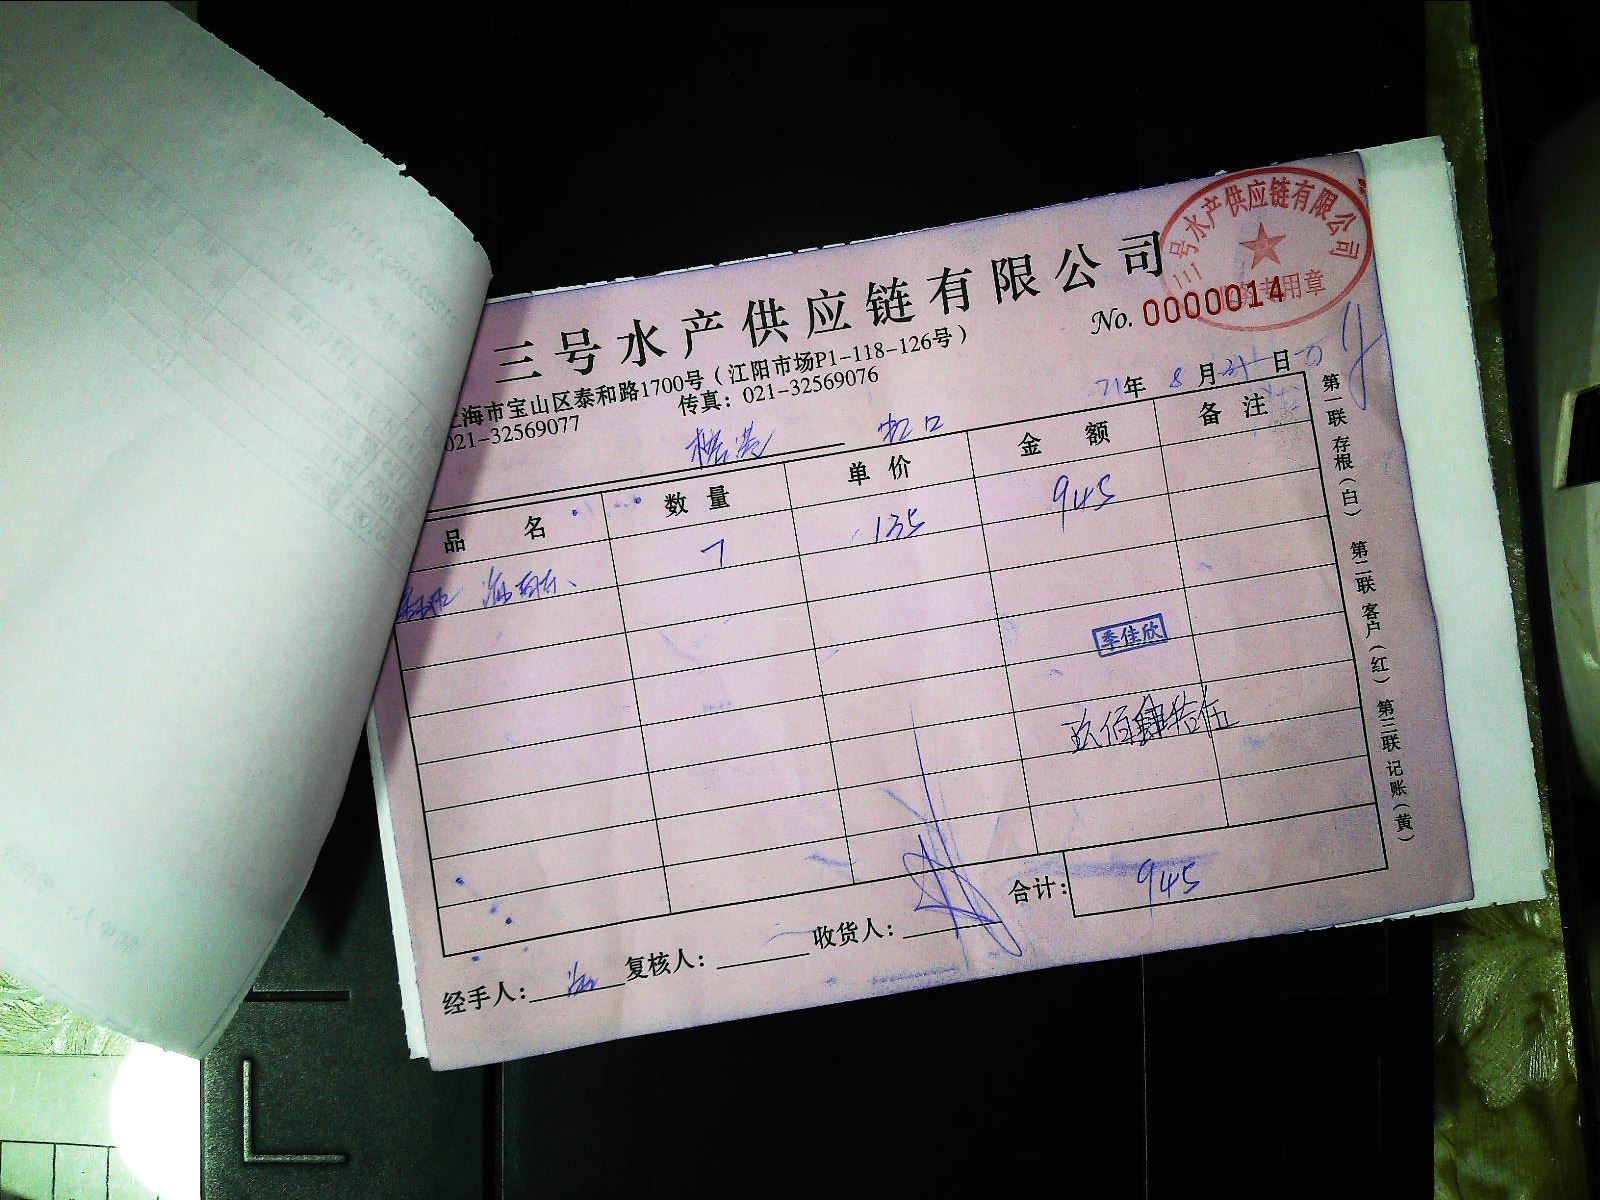 三号水产供应链有限公司
三号水产供应链有限公司
专用章
No. 0000014
上海市宝山区泰和路1700号（江阳市场P1-118-126号）
021-32569077 传真：021-32569076
21年 8月 日
虹口
品名 数量 单价 金额 备注
7 135 945
季佳欣
玖佰肆拾伍
合计： 945
经手人： 复核人： 收货人：
第一联 存根（白） 第二联 客户（红） 第三联 记账（黄）